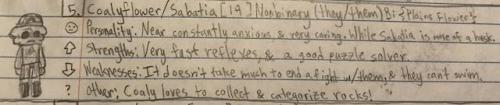 5. Coalyflower/Sabatia [19] Nonbinary (they/them) Bi {Plains Flower}
Personality: Near constantly anxious, & very caring. While Sabatia is more of a husk.
Strengths: Very fast reflexes, & a good puzzle solver.
Weaknesses: It doesn't take much to end a fight w/them, & they can't swim.
? Other: Coaly loves to collect & categorize rocks!